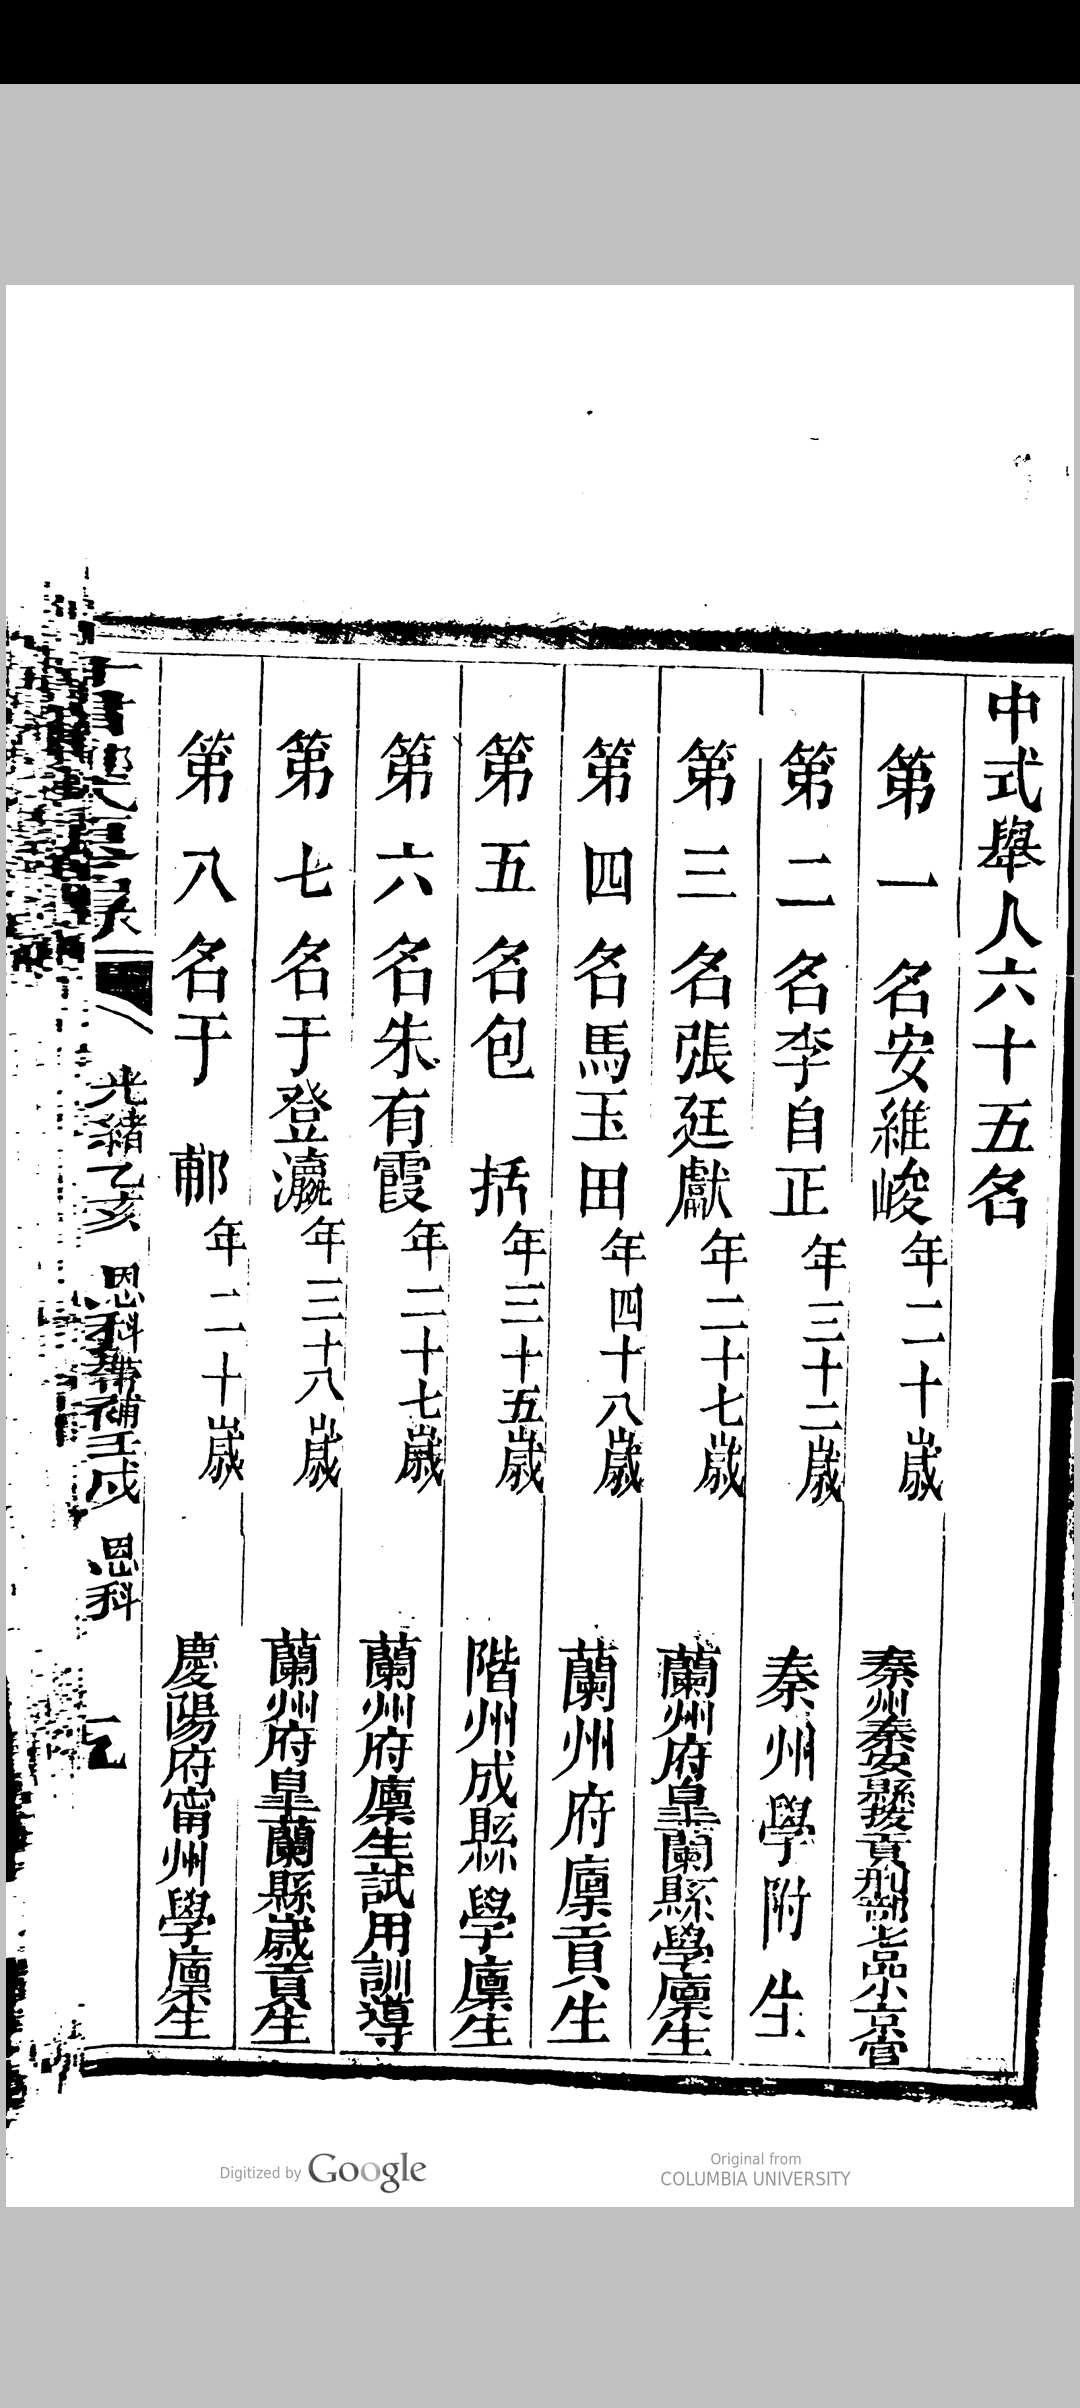 中式舉人六十五名
第一名安維峻年二十歲 秦州秦安縣拔貢刑部七品小京官
第二名李自正年三十二歲 秦州學附生
第三名張廷獻年二十七歲 蘭州府皋蘭縣學廩生
第四名馬玉田年四十八歲 蘭州府廩貢生
第五名包括年三十五歲 階州成縣學廩生
第六名朱有霞年二十七歲 蘭州府廩生試用訓導
第七名于登瀛年三十八歲 蘭州府皋蘭縣歲貢生
第八名于郙年二十歲 慶陽府甯州學廩生
光緒乙亥 恩科帶補壬戌 恩科
Digitized by Google
Original from
COLUMBIA UNIVERSITY